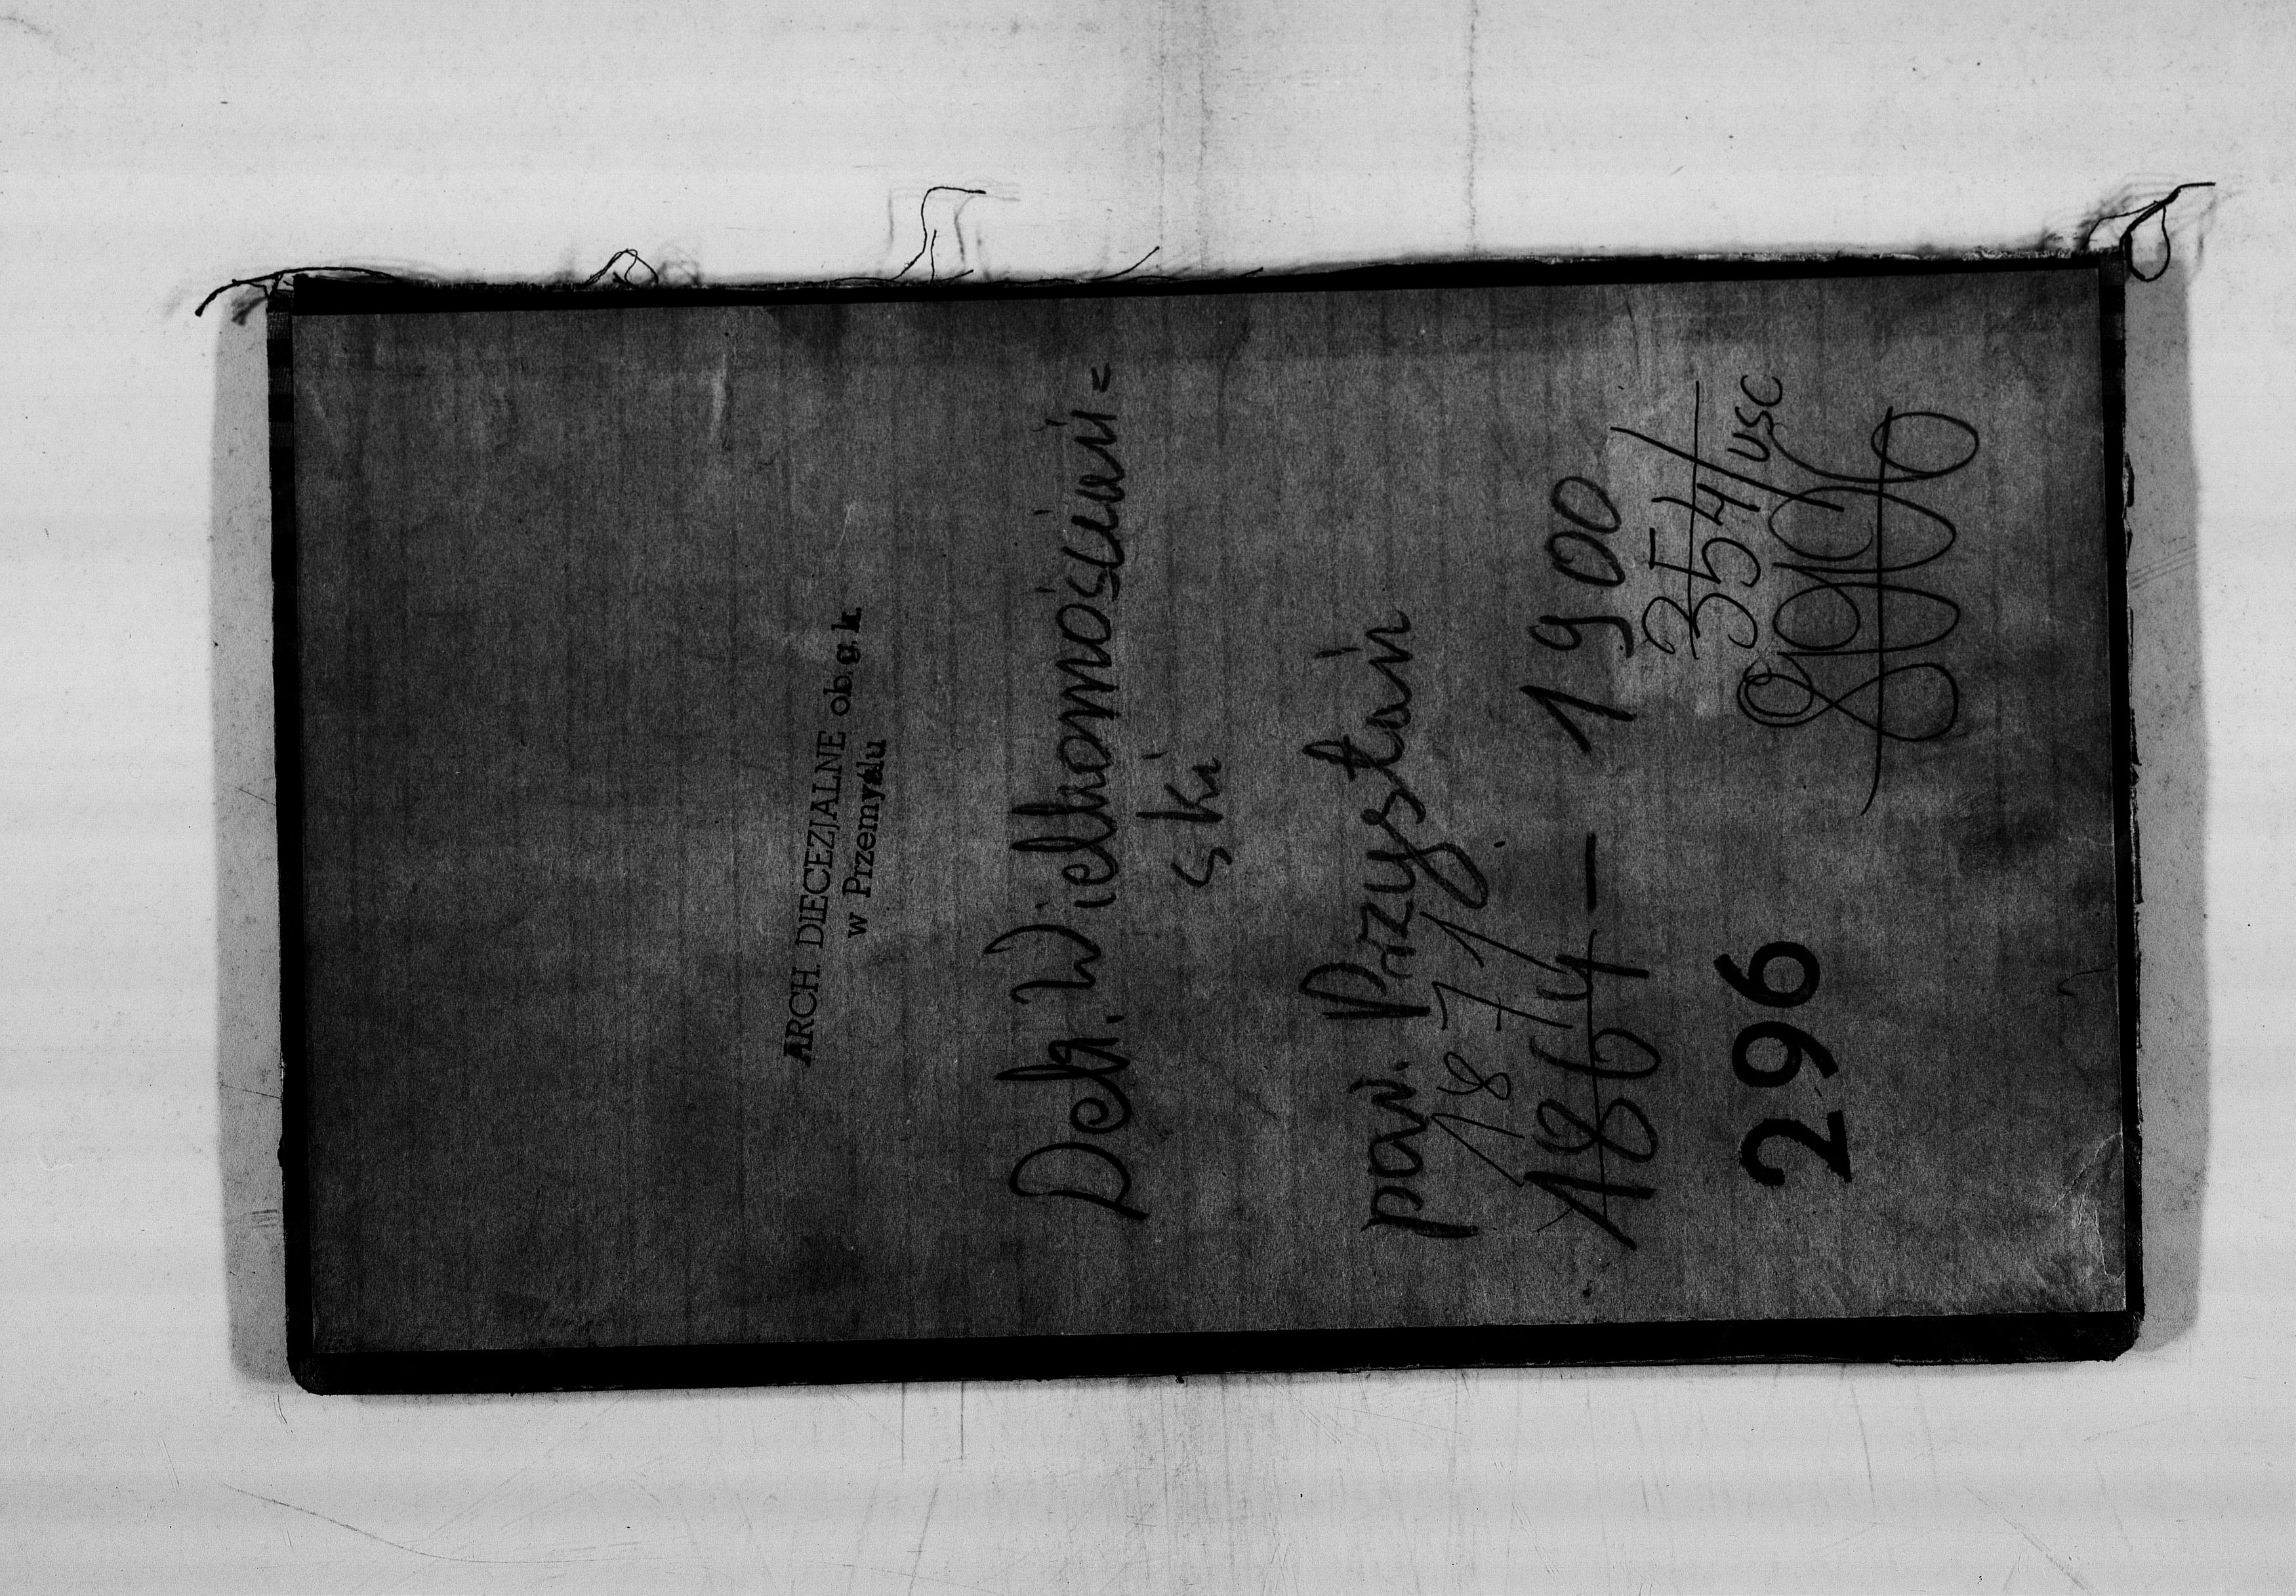 ARCH. DIECEZJALNE ob. g. k.
w Przemyślu
Dek. Wielkomościań=
ski
par. Przystań
1871
1864 — 1900
354/USC
296